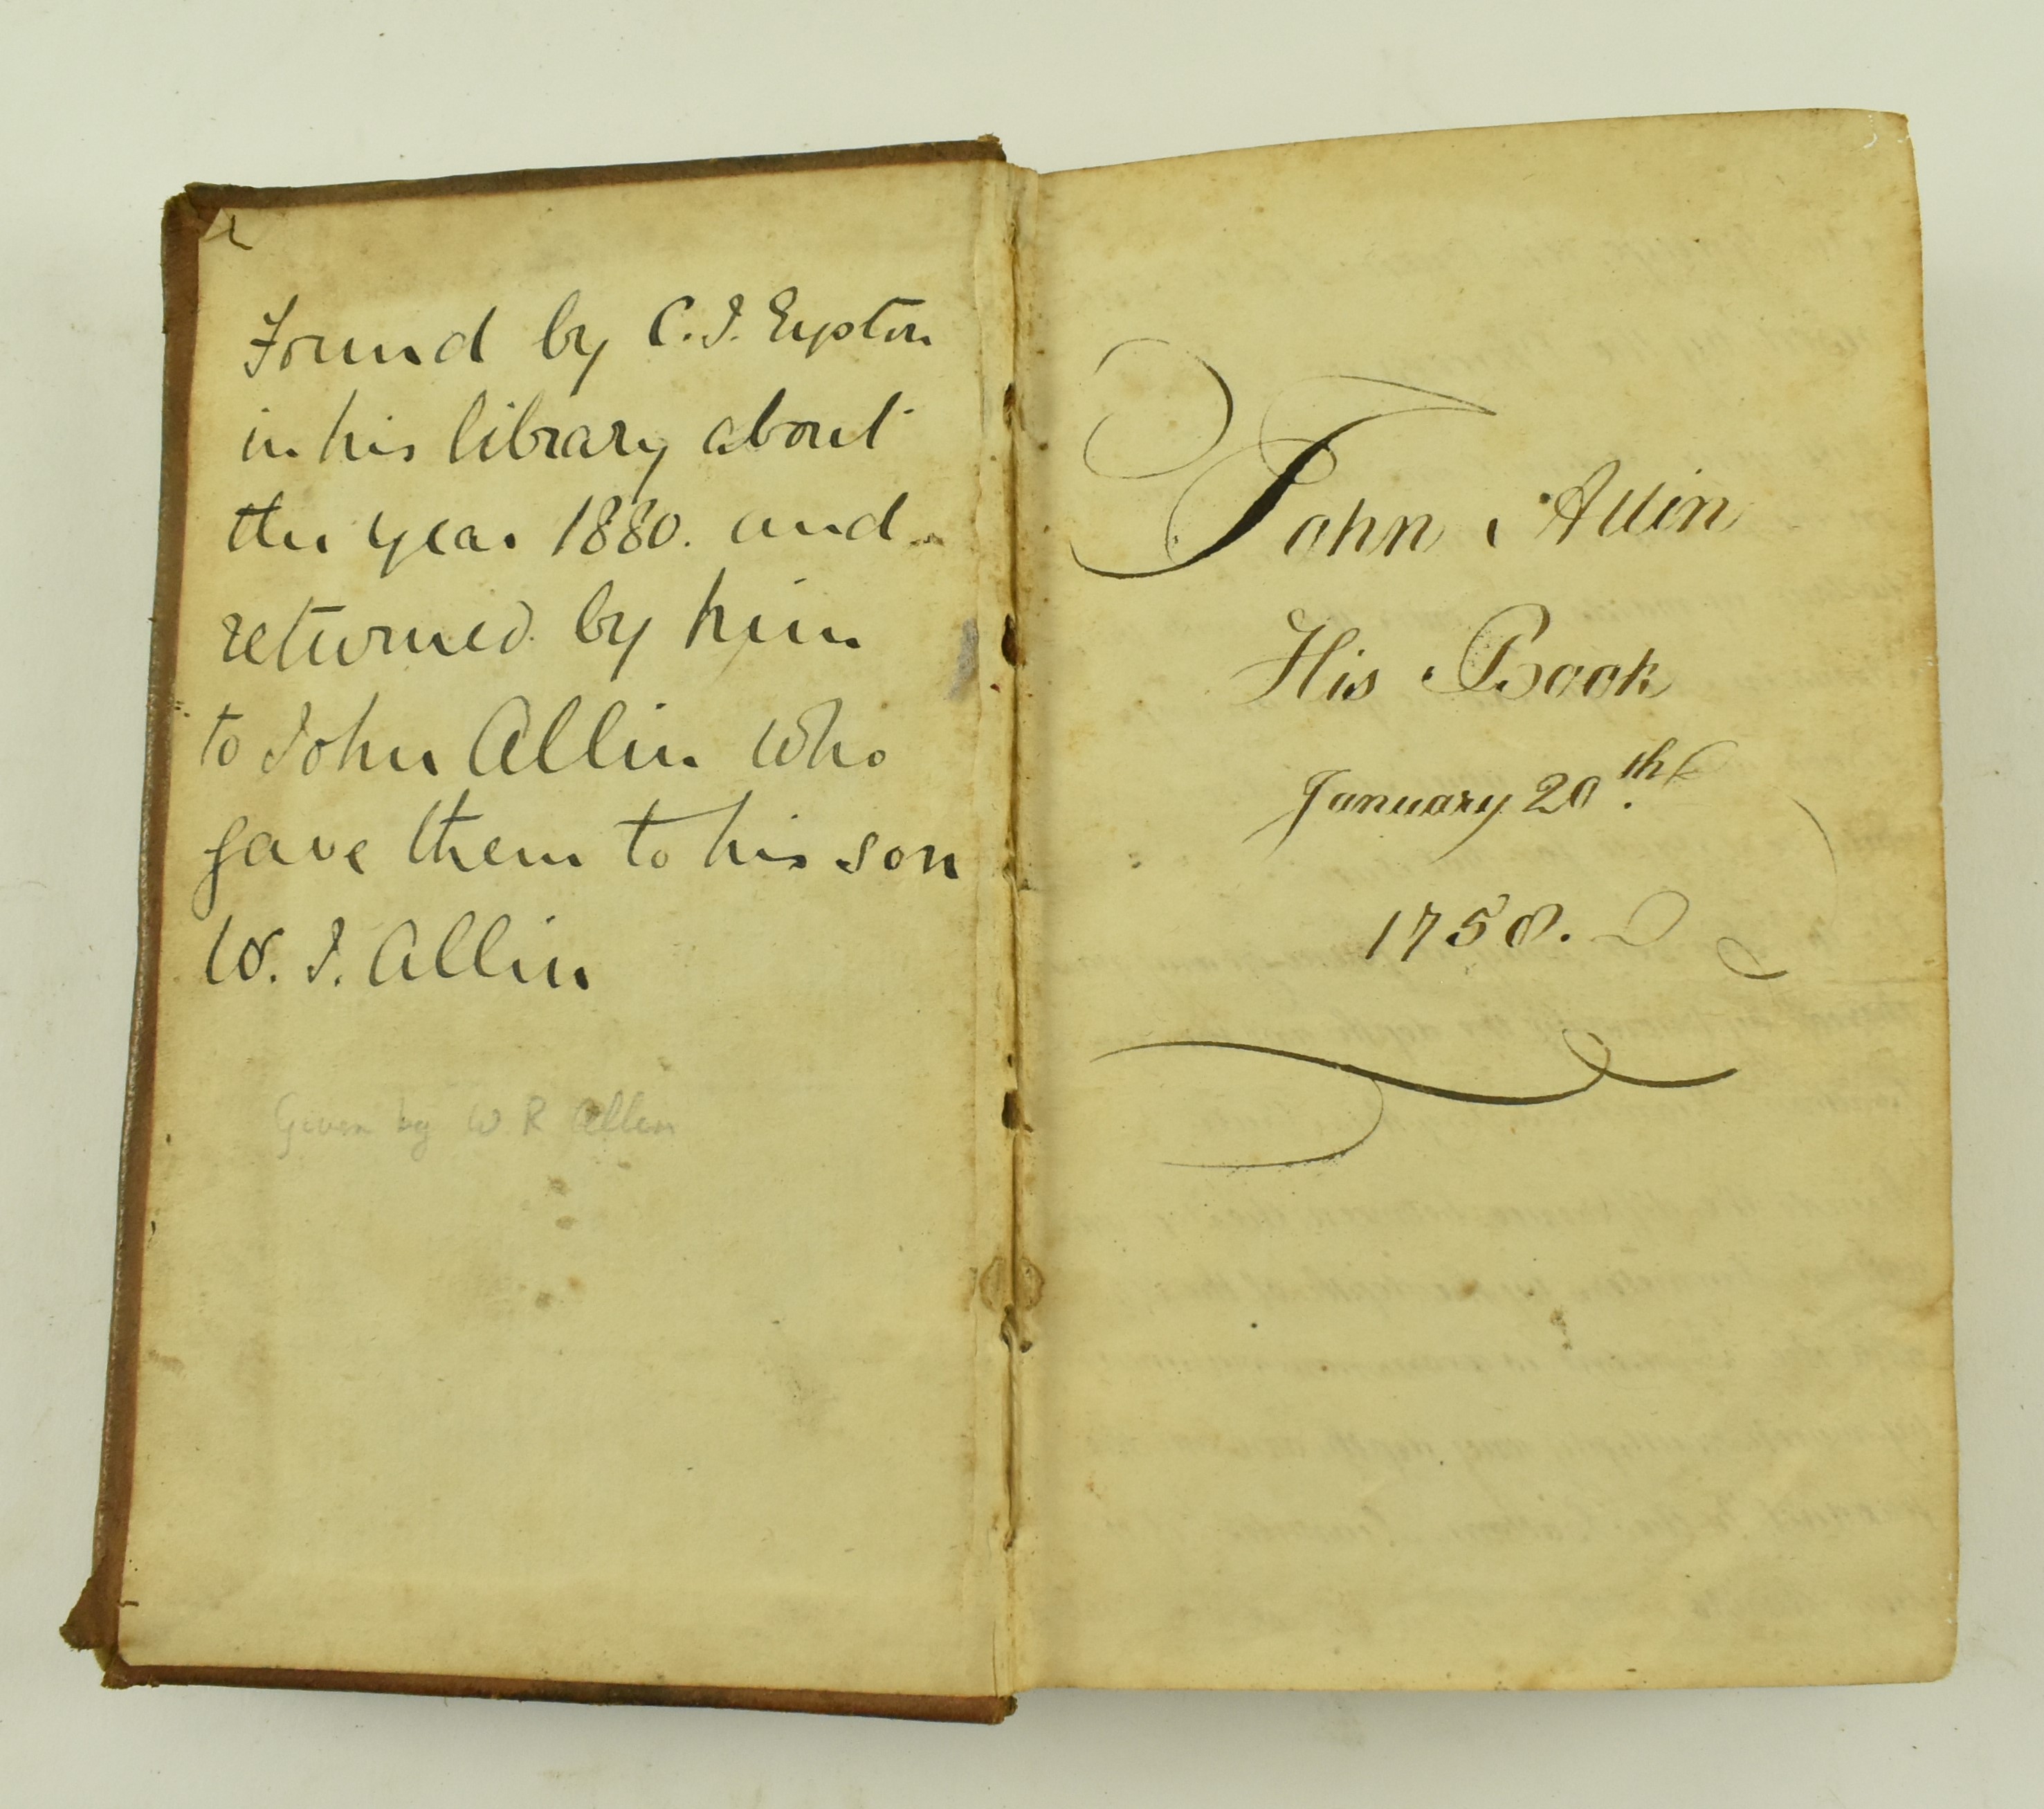 Found by C. J. Eyston
in his library about
the year 1880. and
returned by him
to John Allin who
gave them to his son
W. J. Allin
Given by W R Allin
John Allin
His Book
January 20th.
1758.